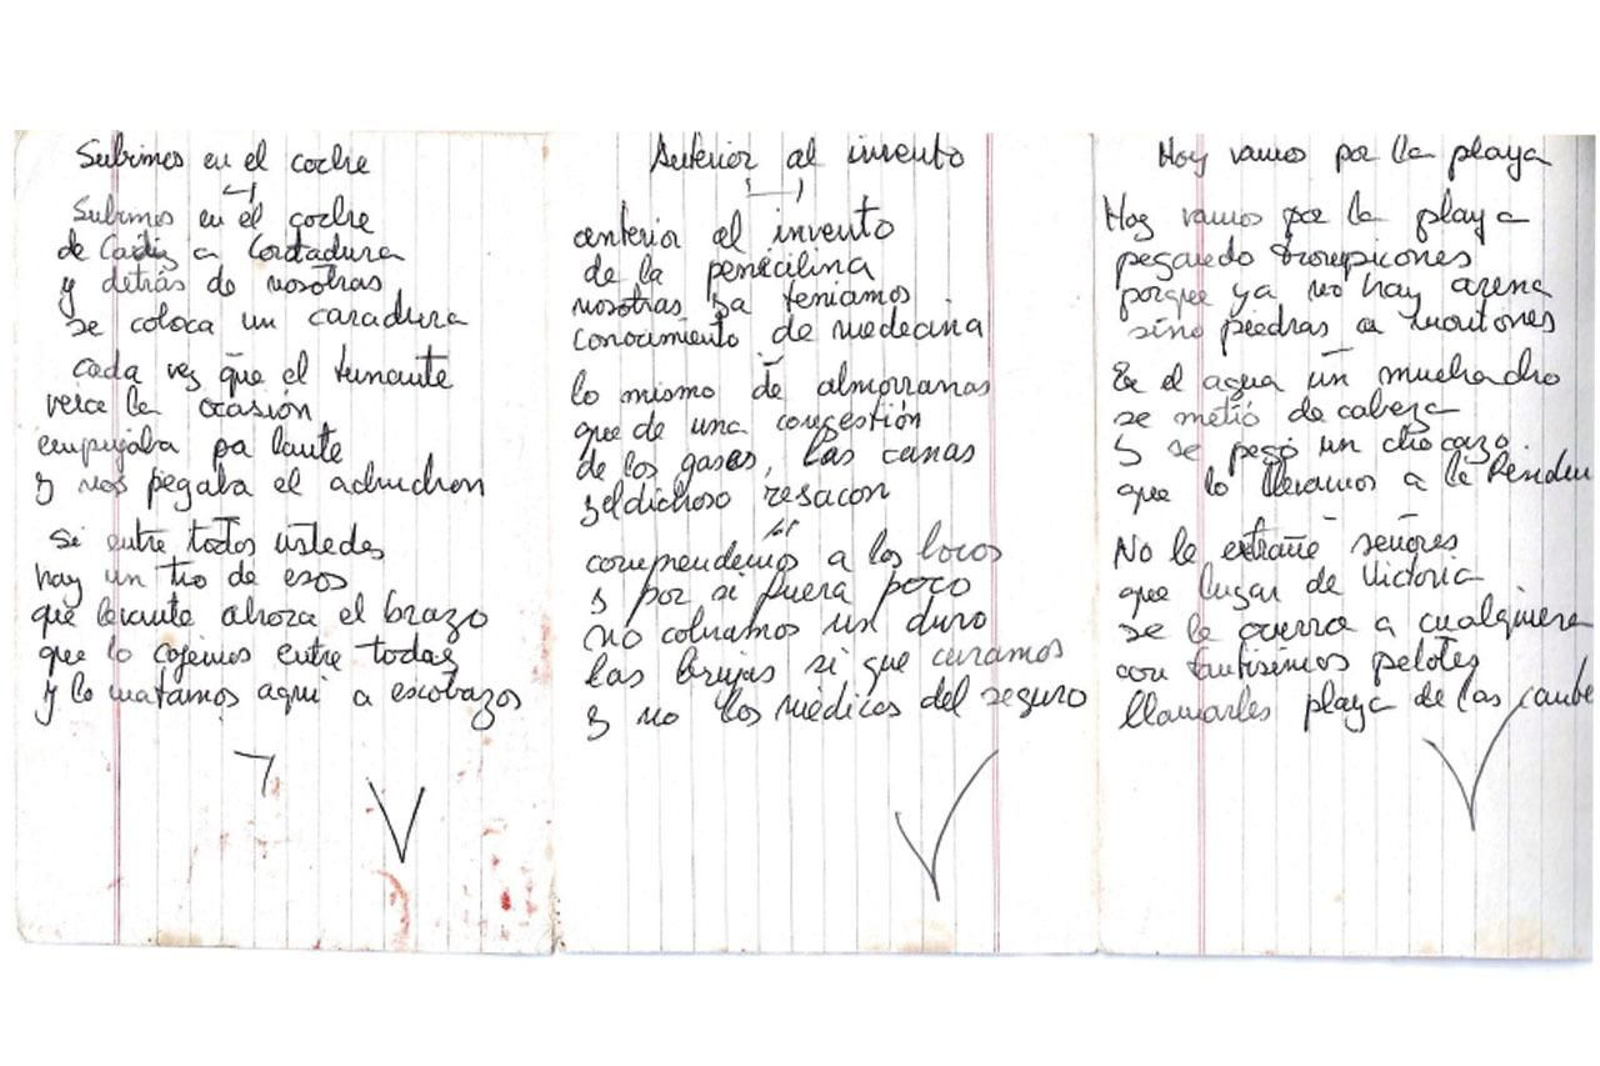 Subimos en el coche
Subimos en el coche
de Cádiz a Cortadura
y detrás de nosotras
se coloca un caradura
cada vez que el tunante
veia la ocasión
empujaba pa lante
y nos pegaba el achuchon
Si entre todos ustedes
hay un tio de esos
que levante ahora el brazo
que lo cojemos entre todas
y lo matamos aqui a escobazos
Anterior al invento
anterior al invento
de la penicilina
nosotras ya teniamos
conocimiento de medecina
lo mismo de almorranas
que de una congestión
de los gases, las canas
y el dichoso resacon
comprendemos a los locos
y por si fuera poco
no cobramos un duro
las brujas si que curamos
y no los médicos del seguro
Hoy vamos por la playa
Hoy vamos por la playa
pegando trompicones
porque ya no hay arena
sino piedras a montones
En el agua un muchacho
se metió de cabeza
y se pegó un chocazo
que lo llevamos a la Residen
No le extrañe señores
que lugar de Victoria
se le ocurra a cualquiera
con tantisimos pelotes
llamarles playa de las cante